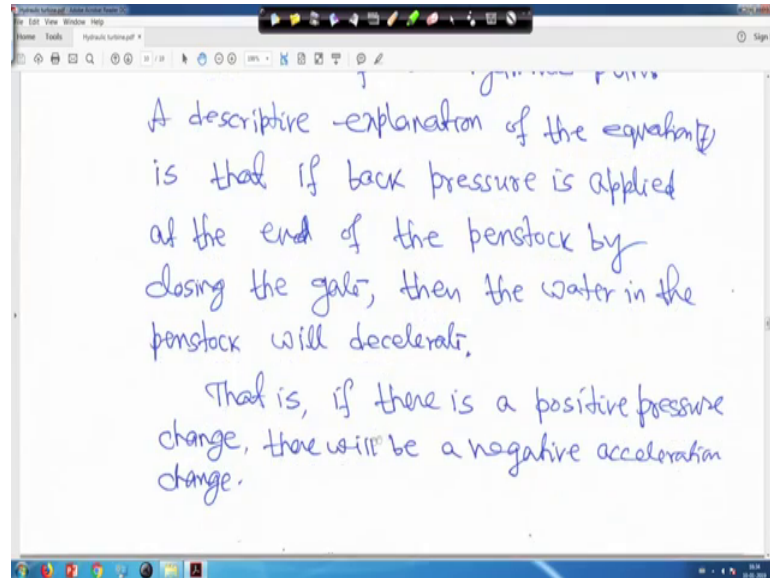 File Edit View Window Help
Home Tools Hydraulic turbine.pdf × Sign
A descriptive explanation of the equation 7
is that if back pressure is applied
at the end of the penstock by
closing the gate, then the water in the
penstock will decelerate.
That is, if there is a positive pressure
change, there will be a negative acceleration
change.